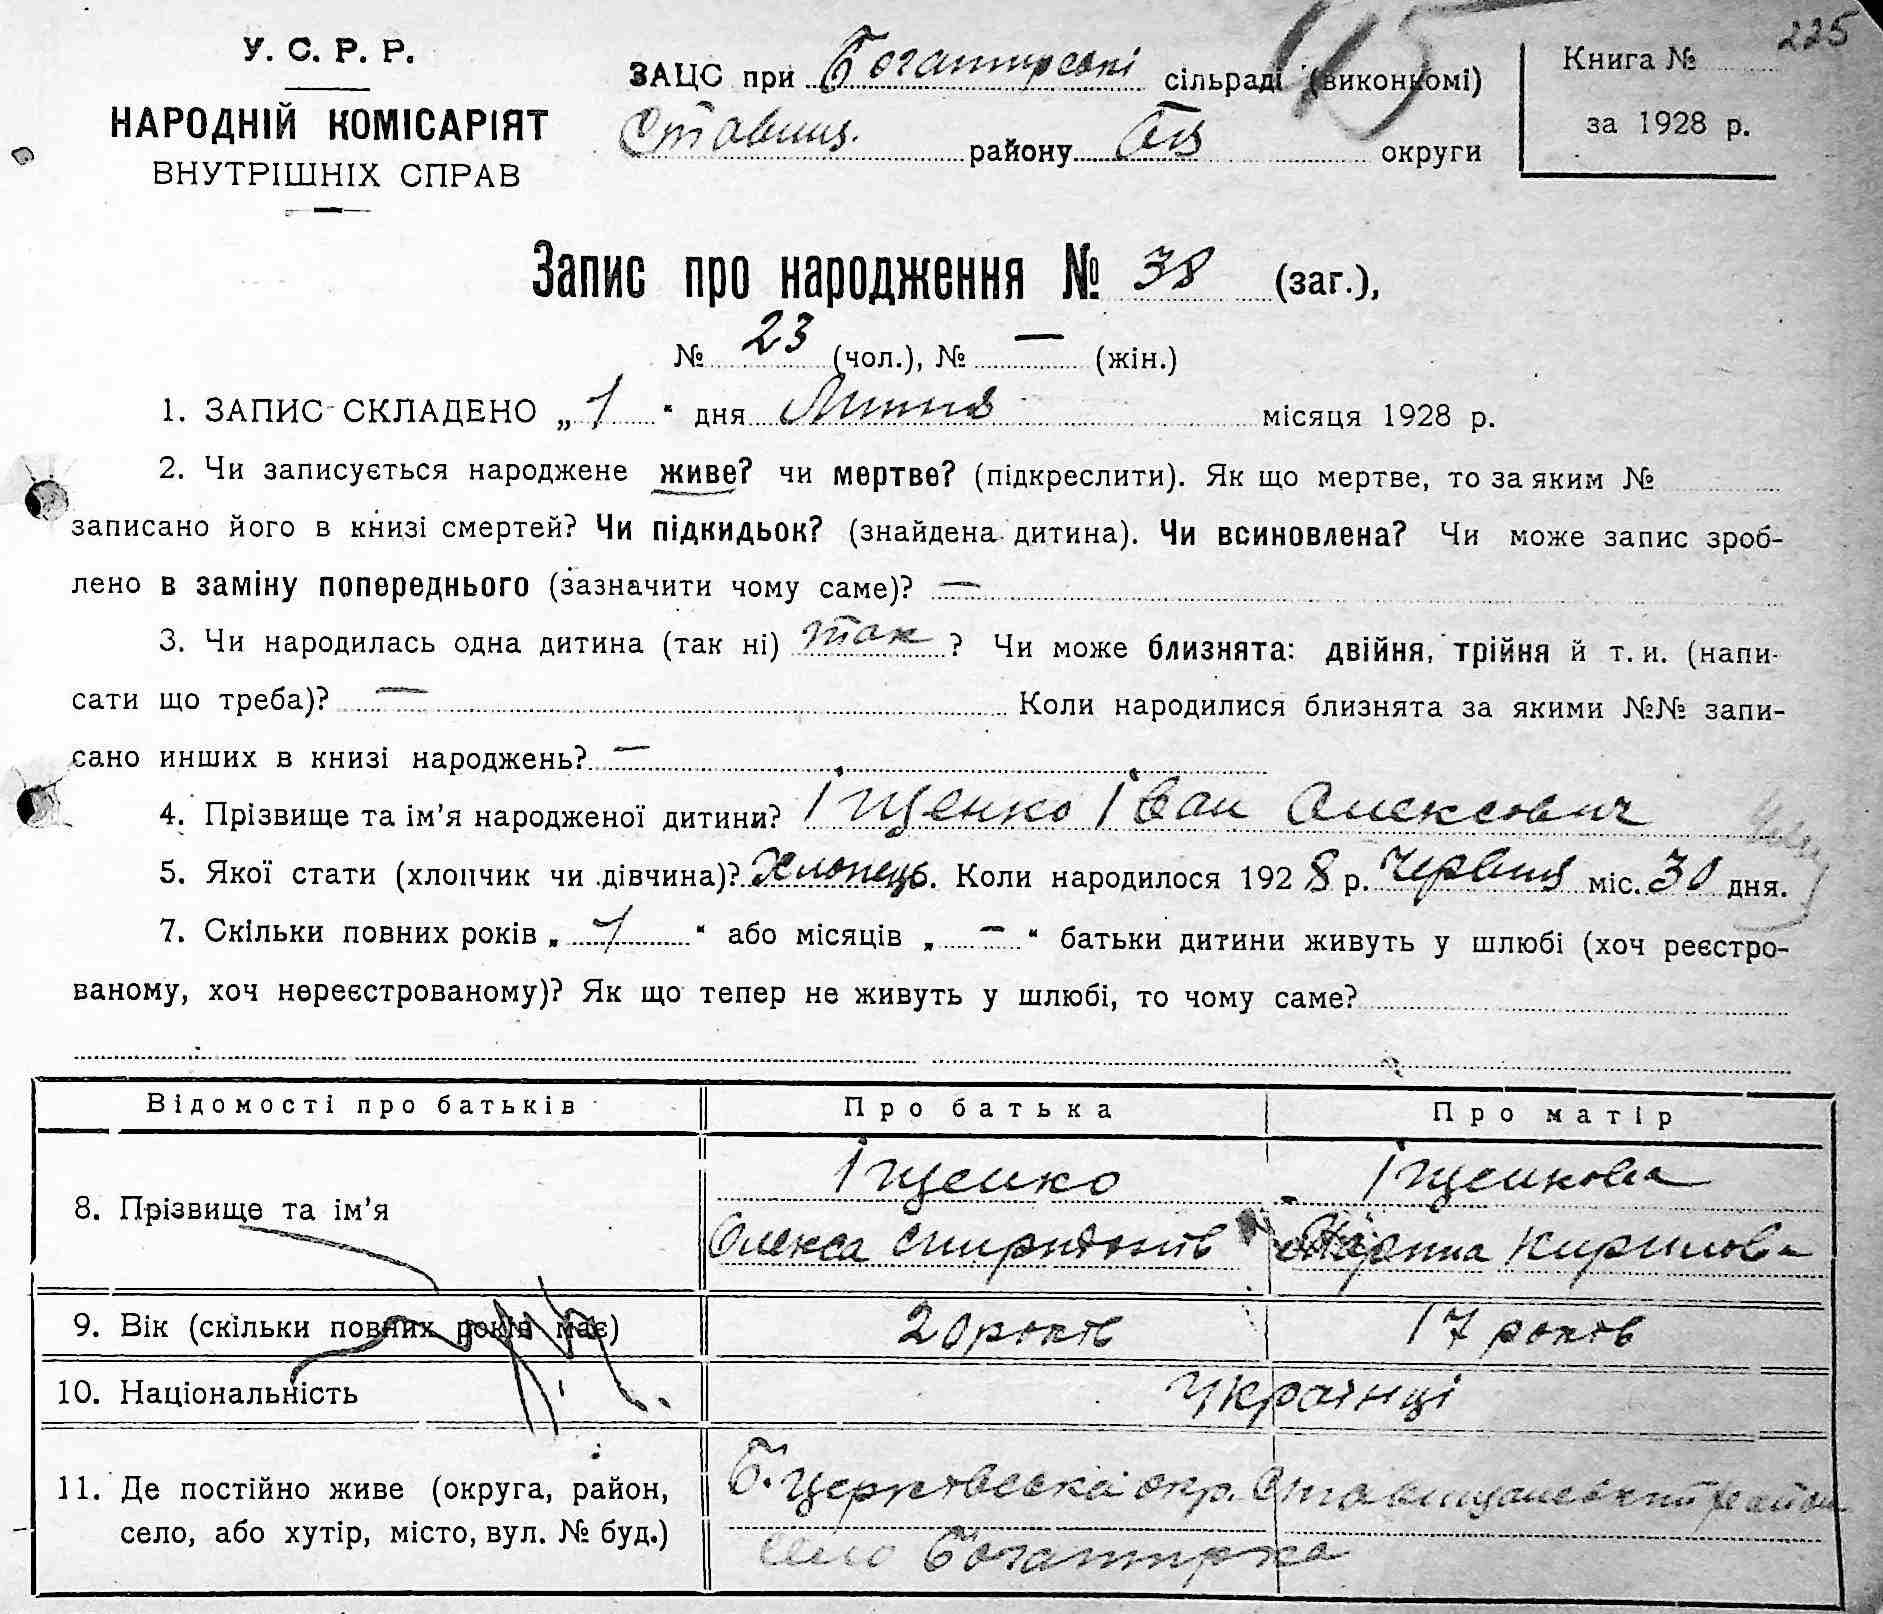 225
У. С. Р. Р.
НАРОДНІЙ КОМІСАРІЯТ
ВНУТРІШНІХ СПРАВ
ЗАЦС при Богатирські сільраді (виконкомі)
Ставищ. району БЦ округи
Книга №
за 1928 р.
Запис про народження № 38 (заг.),
№ 23 (чол.), № — (жін.)
1. ЗАПИС СКЛАДЕНО „ 1 “ дня Липня місяця 1928 р.
2. Чи записується народжене живе? чи мертве? (підкреслити). Як що мертве, то за яким №
записано його в книзі смертей? Чи підкидьок? (знайдена дитина). Чи всиновлена? Чи може запис зроб-
лено в заміну попереднього (зазначити чому саме)? —
3. Чи народилась одна дитина (так ні) так ? Чи може близнята: двійня, трійня й т. и. (напи-
сати що треба)? — Коли народилися близнята за якими №№ запи-
сано инших в книзі народжень? —
4. Прізвище та ім’я народженої дитини? Іщенко Іван Олексович
5. Якої стати (хлопчик чи дівчина)? Хлопець. Коли народилося 1928 р. Червня міс. 30 дня.
7. Скільки повних років „ 1 “ або місяців „ — “ батьки дитини живуть у шлюбі (хоч реєстро-
ваному, хоч нереєстрованому)? Як що тепер не живуть у шлюбі, то чому саме?
Відомості про батьків Про батька Про матір
8. Прізвище та ім’я Іщенко Іщенкова
Олекса Спиридонів Кирилова
9. Вік (скільки повних років має) 20 років 17 років
10. Національність Українці
11. Де постійно живе (округа, район, Б. Церковська окр. Ставищанський район
село, або хутір, місто, вул. № буд.) село Богатирка